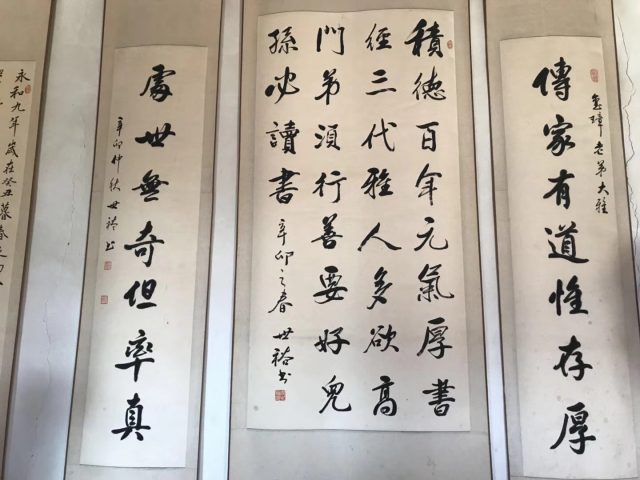 璋老弟大雅
傳家有道惟存厚
積德百年元氣厚書
經三代雅人多欲高
門弟須行善要好兒
孫必讀書
辛卯之春 世裕书
處世無奇但率真
辛卯仲秋世裕书
永和九年歲在癸丑暮春之初